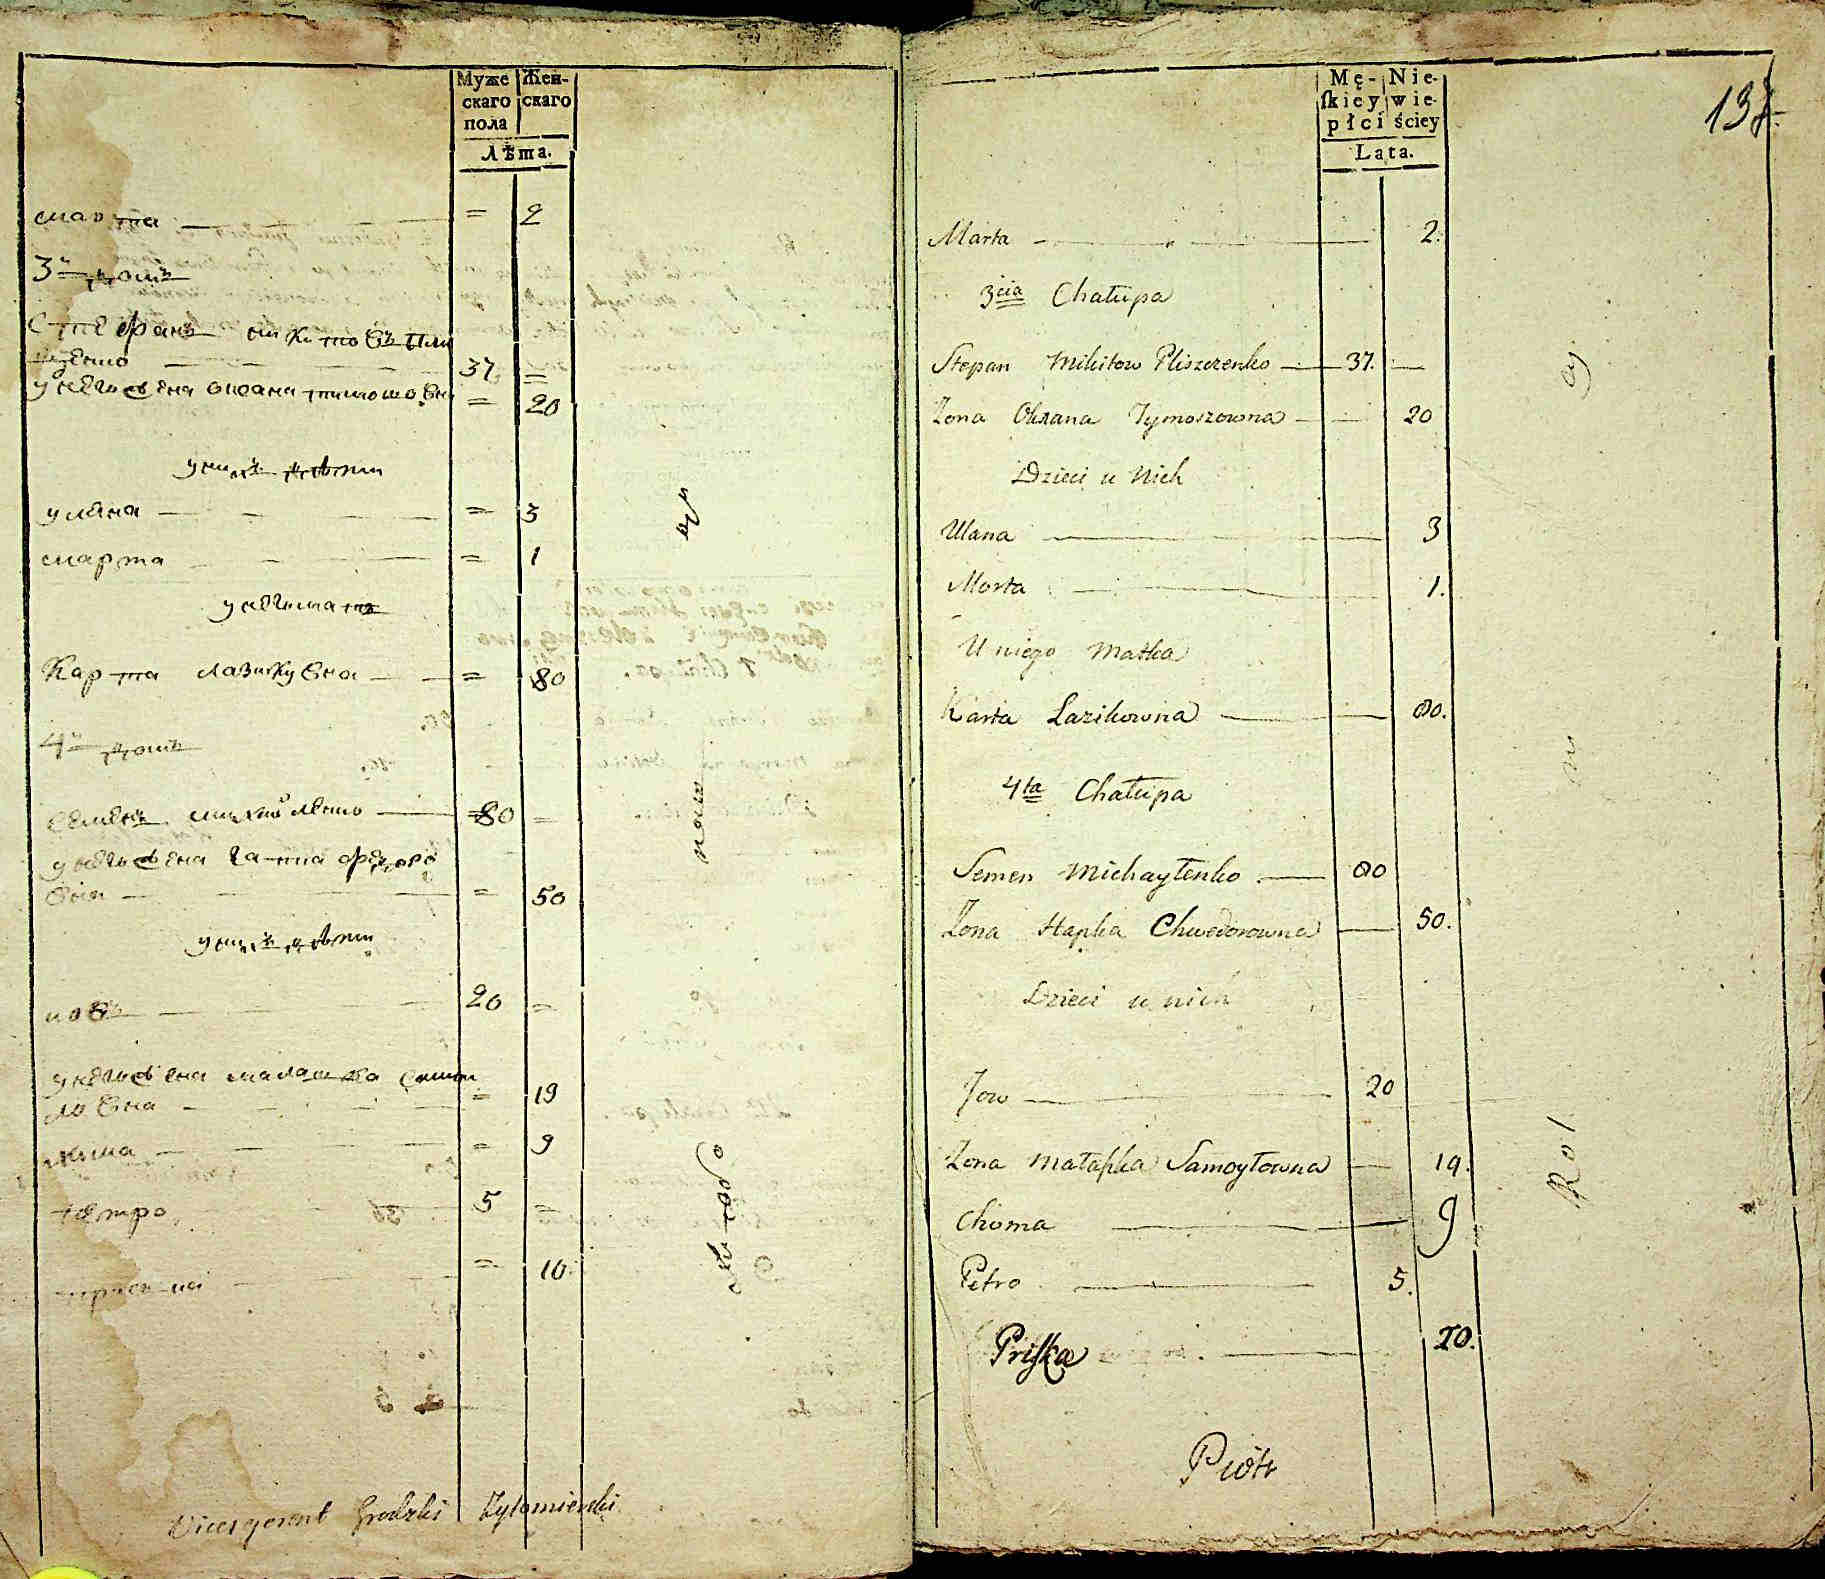 Муже
скаго
пола
Жен-
скаго
Лѣта.
марта = 2
3й домъ
Степанъ микитовъ пли
щенко 37 =
у него жена оксана тимошовна = 20
у нихъ дѣти
уляна = 3
марта = 1
у него мать
Карта лазикувна = 80
4й домъ
семенъ михайленко 80 =
у него жена гапка федоро
вна = 50
у нихъ дѣти
иовъ 20 =
у него жена малашка самой
ловна = 19
хима = 9
петро 5 =
приска = 10
Vicesgerent Grodzki Zytomierski
137
Mę-
skiey
płci
Nie-
wie-
ściey
Lata.
Marta 2.
3cia Chałupa
Stepan Mikitow Pliszczenko 37.
Zona Oxana Tymoszowna 20
Dzieci u Nich
Ulana 3
Morta 1.
U niego Matka
Karta Lazikowna 80.
4ta Chałupa
Semen Michayłenko 80
Zona Hapka Chwedorowna 50.
Dzieci u nich
Jow 20
Zona Małaszka Samoyłowna 19.
Choma 9
Petro 5.
Priska 10.
Piotr
Rol